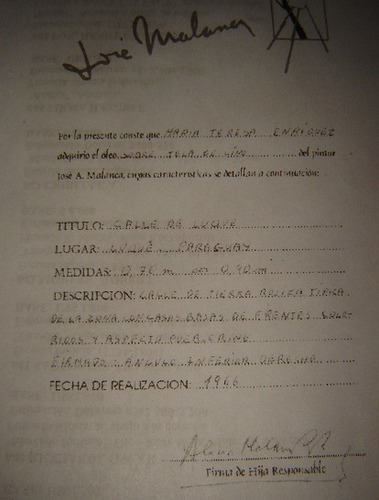 José Malanca
Por la presente conste que MARIA TERESA ENRIQUEZ
adquirio el oleo SOBRE TELA DE LINO del pintor
José A. Malanca, cuyas caracteristicas se detallan a continuacion:
TITULO: CALLE DE LUQUE
LUGAR: LUQUE - PARAGUAY
MEDIDAS: 0,70 m por 0,90 m
DESCRIPCION: CALLE DE TIERRA ROJIZA TIPICA
DE LA ZONA CON CASAS BAJAS DE FRENTES COLO-
RIDOS Y ASPECTO PUEBLERINO
FIRMADO: ANGULO INFERIOR DERECHO
FECHA DE REALIZACION: 1966
Firma de Hija Responsable